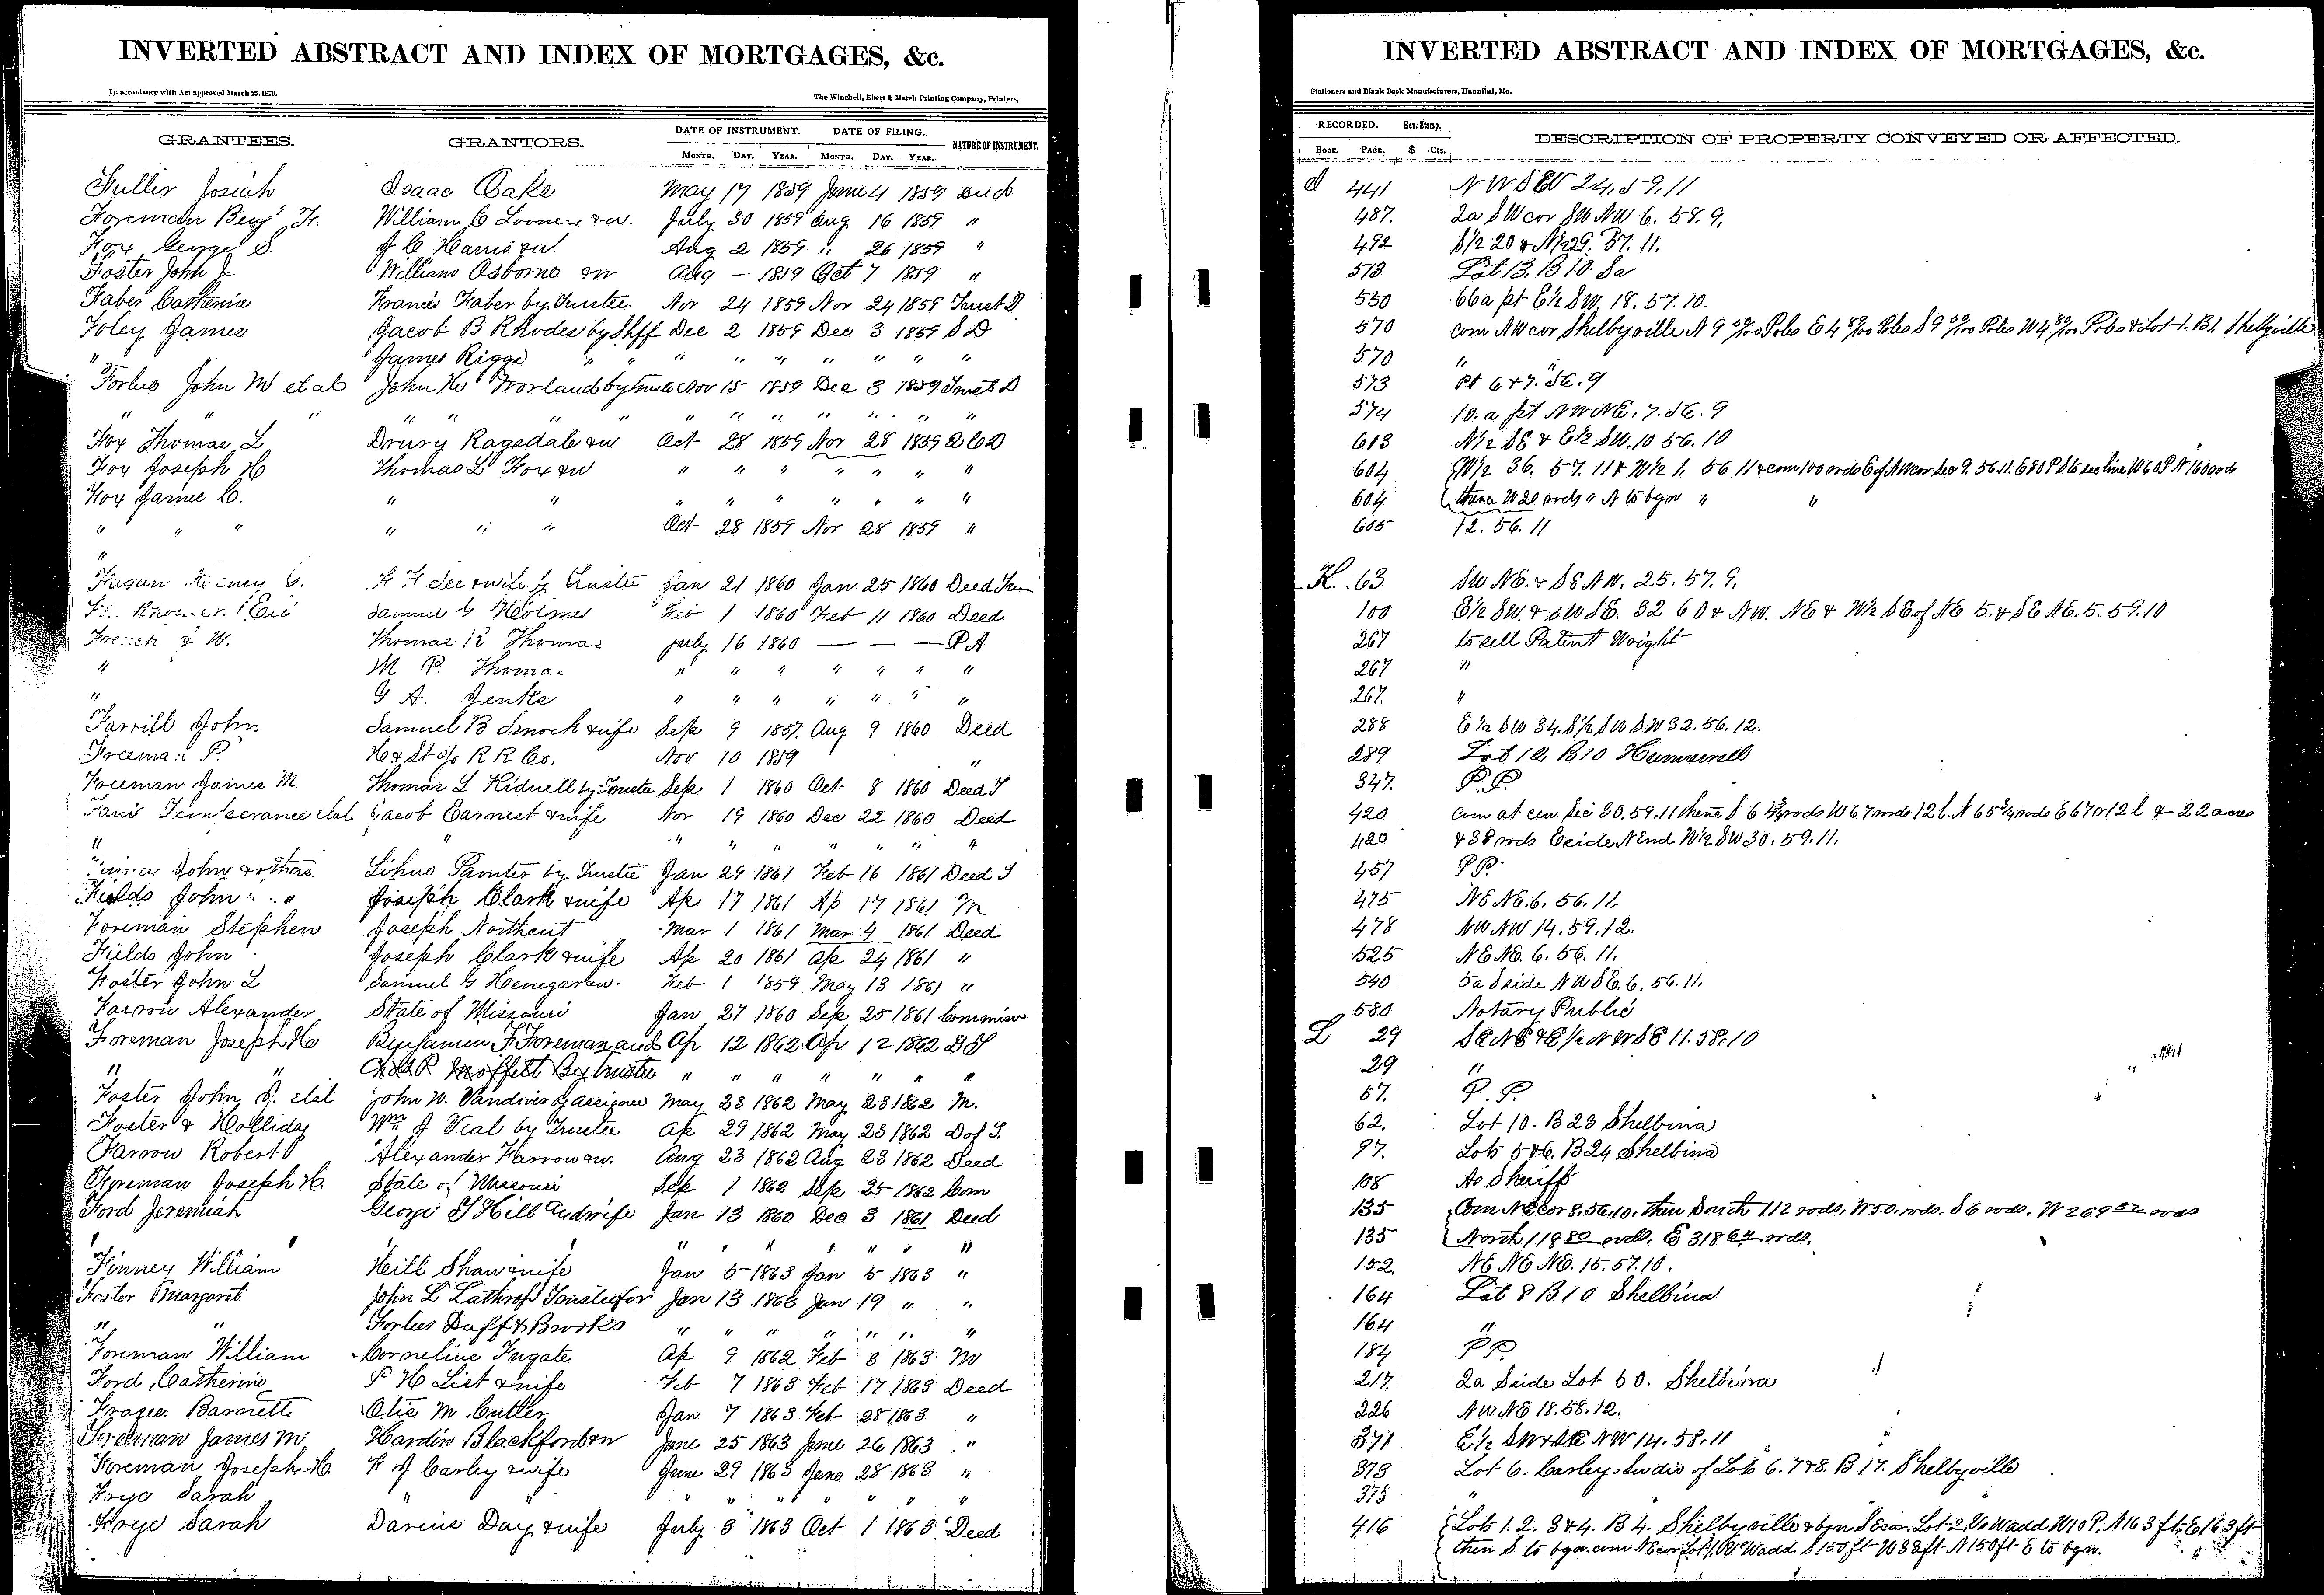 INVERTED ABSTRACT AND INDEX OF MORTGAGES, &c.
In accordance with Act approved March 25, 1870.
The Winchell, Ebert & Marsh Printing Company, Printers,
GRANTEES. GRANTORS. DATE OF INSTRUMENT. DATE OF FILING. NATURE OF INSTRUMENT.
MONTH. DAY. YEAR. MONTH. DAY. YEAR.
Fuller Josiah Isaac Oaks May 17 1859 June 4 1859 Deed
Foreman Benj F. William C Looney &w. July 30 1859 Aug 16 1859 "
Fox George S. J C Harris &w. Aug 2 1859 " 26 1859 "
Foster John J William Osborne &w Aug - 1859 Oct 7 1859 "
Faber Catherine Francis Faber by Trustee. Nov 24 1859 Nov 24 1859 Trust D
Foley James Jacob B Rhodes by Shff Dec 2 1859 Dec 3 1859 S D
" James Riggs " " " " " " " "
Forbes John M et als John W by Trustee Nov 15 1859 Dec 3 1859 Trust D
" " " " " " " " " " " " "
Fox Thomas L Drury Ragsdale &w Oct 28 1859 Nov 28 1859 Q C D
Fox Joseph H Thomas L Fox &w " " " " " " "
Fox James C. " " " " " " " " "
" " " " " " Oct 28 1859 Nov 28 1859 "
"
F F See & wife by Trustee Jan 21 1860 Jan 25 1860 Deed
Samuel G Feb 1 1860 Feb 11 1860 Deed
French J W. Thomas R Thomas July 16 1860 — — — P A
" M P. Thomas " " " " " " "
" G A. Jenks " " " " " " "
Farrill John Samuel B Smock & wife Sep 9 1857 Aug 9 1860 Deed
Freeman P. H & St Jo R R Co. Nov 10 1859 "
Freeman James M. Thomas L Kidwell by Trustee Sep 1 1860 Oct 8 1860 Deed T
Jacob Earnest & wife Nov 19 1860 Dec 22 1860 Deed
" " " " " " " "
Finney John by Trustee Jan 29 1861 Feb 16 1861 Deed T
Fields John " " Joseph Clark & wife Ap 17 1861 Ap 17 1861 M
Foreman Stephen Joseph Northcut Mar 1 1861 Mar 4 1861 Deed
Fields John Joseph Clark & wife Ap 20 1861 Ap 24 1861 "
Foster John L Samuel G Henegar &w. Feb 1 1859 May 13 1861 "
Farrow Alexander State of Missouri Jan 27 1860 Sep 25 1861 Commisn
Foreman Joseph H Benjamin F Foreman and Ap 12 1862 Ap 12 1862 D T
" " R Moffett By trustee " " " " " " "
Foster John J. et al John W. Vandiver by assignee May 23 1862 May 23 1862 M.
Foster & Holliday Wm J Veal by Trustee Ap 29 1862 May 23 1862 D of T.
Farrow Robert Alexander Farrow &w. Aug 23 1862 Aug 23 1862 Deed
Foreman Joseph H. State of Missouri Sep 1 1862 Sep 25 1862 Com
Ford Jeremiah George T Hill and wife Jan 13 1860 Dec 3 1861 Deed
" " " " " " " " "
Finney William Neill Shaw & wife Jan 5 1863 Jan 5 1863 "
Foster Margaret John L Lathrop Trustee for Jan 13 1863 Jan 19 " "
" " Forbes Duff & Brooks " " " " " " "
Foreman William Cornelius Fugate Ap 9 1862 Feb 3 1863 M
Ford Catherine P H List & wife Feb 7 1863 Feb 17 1863 Deed
Frazee Barnette Otis M Cutler Jan 7 1863 Feb 28 1863 "
Freeman James M Hardin Blackford &w June 25 1863 June 26 1863 "
Foreman Joseph H. F J Carley & wife June 29 1863 June 28 1863 "
Frye Sarah " " " " " " " "
Frye Sarah Darius Day & wife July 3 1863 Oct 1 1863 Deed
INVERTED ABSTRACT AND INDEX OF MORTGAGES, &c.
Stationers and Blank Book Manufacturers, Hannibal, Mo.
RECORDED. Rev. Stamp. DESCRIPTION OF PROPERTY CONVEYED OR AFFECTED.
BOOK. PAGE. $ Cts.
J 441 NW SW 24, 59, 11
487. 2a SW cor SW NW 6. 58. 9,
492 S½ 20 & N½ 29. 57. 11.
513 Lot 13. B 10. Sa
550 66a pt E½ SW. 18. 57. 10.
570 com NW cor Shelbyville
570 " "
573 Pt 6 & 7. 56. 9
574 10. a pt NW NE. 7. 56. 9
613 N½ SE & E½ SW. 10 56. 10
604 W½ 36. 57. 11 & W½ 1. 56 11 & com 100 rods E of NW cor Sec 9. 56. 11. E 80 P S to sec line W 60 P N 160 rods
604 thence W 20 rods " N to bgn " "
605 12. 56. 11
K. 63 SW NE. & SE NW. 25. 57. 9.
100 E½ SW. & SW SE. 32 60 & NW. NE & W½ SE of NE 5. & SE NE. 5. 59. 10
267 to sell Patent Weight
267 "
267. "
288 E½ SW 34. S½ SW SW 32. 56. 12.
289 Lot 12 B 10 Hunnewell
347. P. P.
420 com at cen Sec 30. 59. 11 thence S W 67 rods 12 l. N 65¾ rods E 67 r 12 l & 22 acres
420 & 38 rods E side N end W½ SW 30. 59. 11.
457 P P.
475 NE NE. 6. 56. 11.
478 NW NW 14. 59. 12.
525 NE NE. 6. 56. 11.
540 5a S side NW SE. 6. 56. 11.
580 Notary Public
L 29 SE NE & E½ NW SE 11. 58. 10
29 "
57. P. P.
62. Lot 10. B 23 Shelbina
97. Lots 5 & 6. B 24 Shelbina
108 As Sheriff
135 Com NE cor 8. 56. 10. then South 112 rods, W 50. rods. S 6 rods. W 269 rods
135 North 118 80 rods. E 318 64 rods.
152. NE NE NE. 15. 57. 10.
164 Lot 8 B 10 Shelbina
164 "
184 P P.
217. 2a S side Lot 60. Shelbina
226 NW NE 18. 58. 12.
371 E½ SW & SE NW 14. 58. 11
373 Lot 6. Carleys Su div of Lots 6. 7 & 8. B 17. Shelbyville
373 "
416 Lots 1. 2. 3 & 4. B 4. Shelbyville & bgn SE cor. Lot 2, Wadd W 10 P. N 163 ft. E 163 ft
then S to bgn. com NE cor Lot 1. Wadd S 150 ft W 33 ft N 150 ft E to bgn.